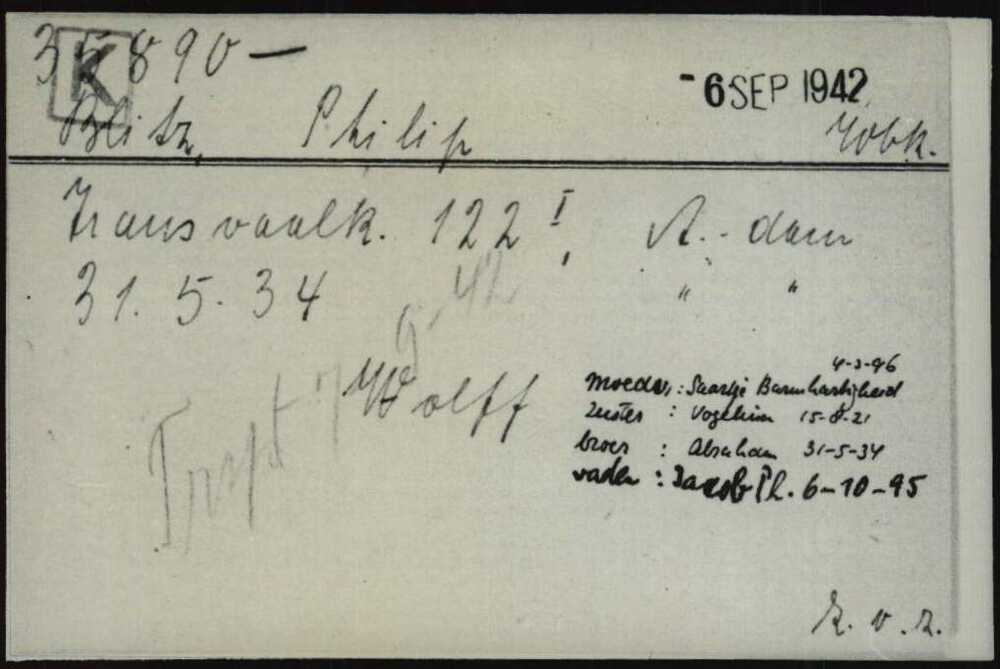 35890 —
K
-6 SEP 1942
Blitz, Philip
Transvaalk. 122 I, A.-dam
31.5.34 " "
Trspt 7.9.42
Wolff
4-3-96
moeder: Saartje Barmhartigheid
zuster: Vogelina 15-8-21
broer: Abraham 31-5-34
vader: Jacob Ph. 6-10-95
Z. v. Z.